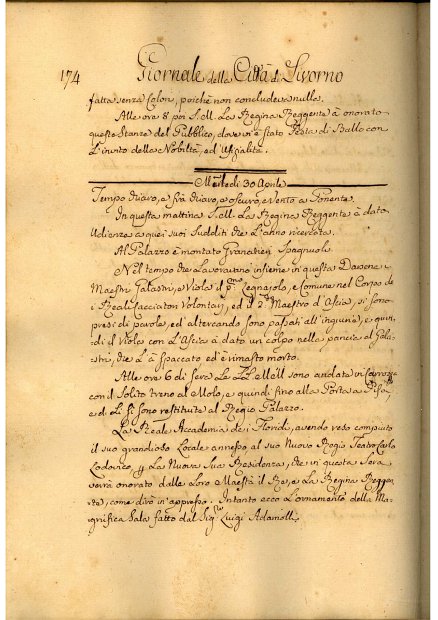 174 Giornale della Città di Livorno
fatta senza Colori, poiché non concludeva nulla.
Alle ore 8 poi S. M. La Regina Reggente à onorato
queste Stanze del Pubblico, dove vi è stato Festa di Ballo con
L'invito della Nobiltà, ed Ufizialità.
Martedì 30 Aprile
Tempo chiaro, e fra chiaro, e oscuro, e vento a Ponente.
In questa mattina S. M. La Regina Reggente à dato
Udienza a quei suoi Sudditi che L'anno ricercata.
Al Palazzo è montato Granatieri Spagnuoli
Nel tempo che Lavoravano insieme in questa Darsena i
Maestri Galastri, e Viola il p.mo Legnajolo, e Comune nel Corpo de
i Reali Cacciatori Volontarj, ed il 2.do Maestro d'Ascia, si sono
presi di parole, ed altercando sono passati all'ingiurie, e quin
di il Viola con L'Ascia à dato un colpo nella pancia al Gala
stri, che L'à spaccato ed è rimasto morto.
Alle ore 6 di sera Le LL. MM. sono andate in Carrozza
con il Solito treno al Molo, e quindi fino alla Porta a Pisa,
e di Lì si sono restituite al Regio Palazzo.
La Reale Accademia dei Floridi, avendo reso compiuto
il suo grandioso Locale annesso al suo Nuovo Regio Teatro Carlo
Lodovico La Nuova Sua Residenza, che in questa Sera
verrà onorato dalle Loro Maestà il Re, e La Regina Reggen
te, come dirò in appresso. Intanto ecco L'ornamento della Ma
gnifica Sala fatto dal Sig.re Luigi Adamolli.